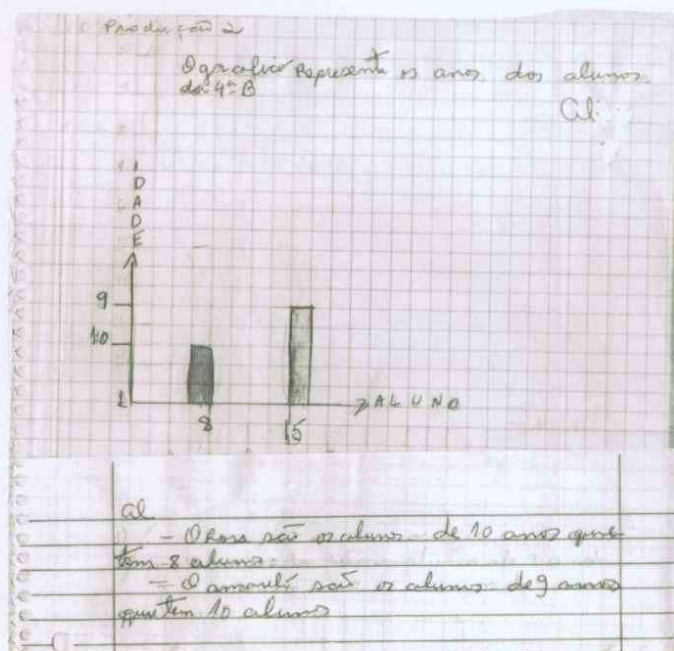 Produção 2
O grafico representa os anos dos alunos
da 4ª B
Al
I
D
A
D
E
9
10
1
8
15
ALUNO
Al
- O Rosa são os alunos de 10 anos que
tem 8 alunos.
- O amarelo são os alunos de 9 anos
que tem 10 alunos